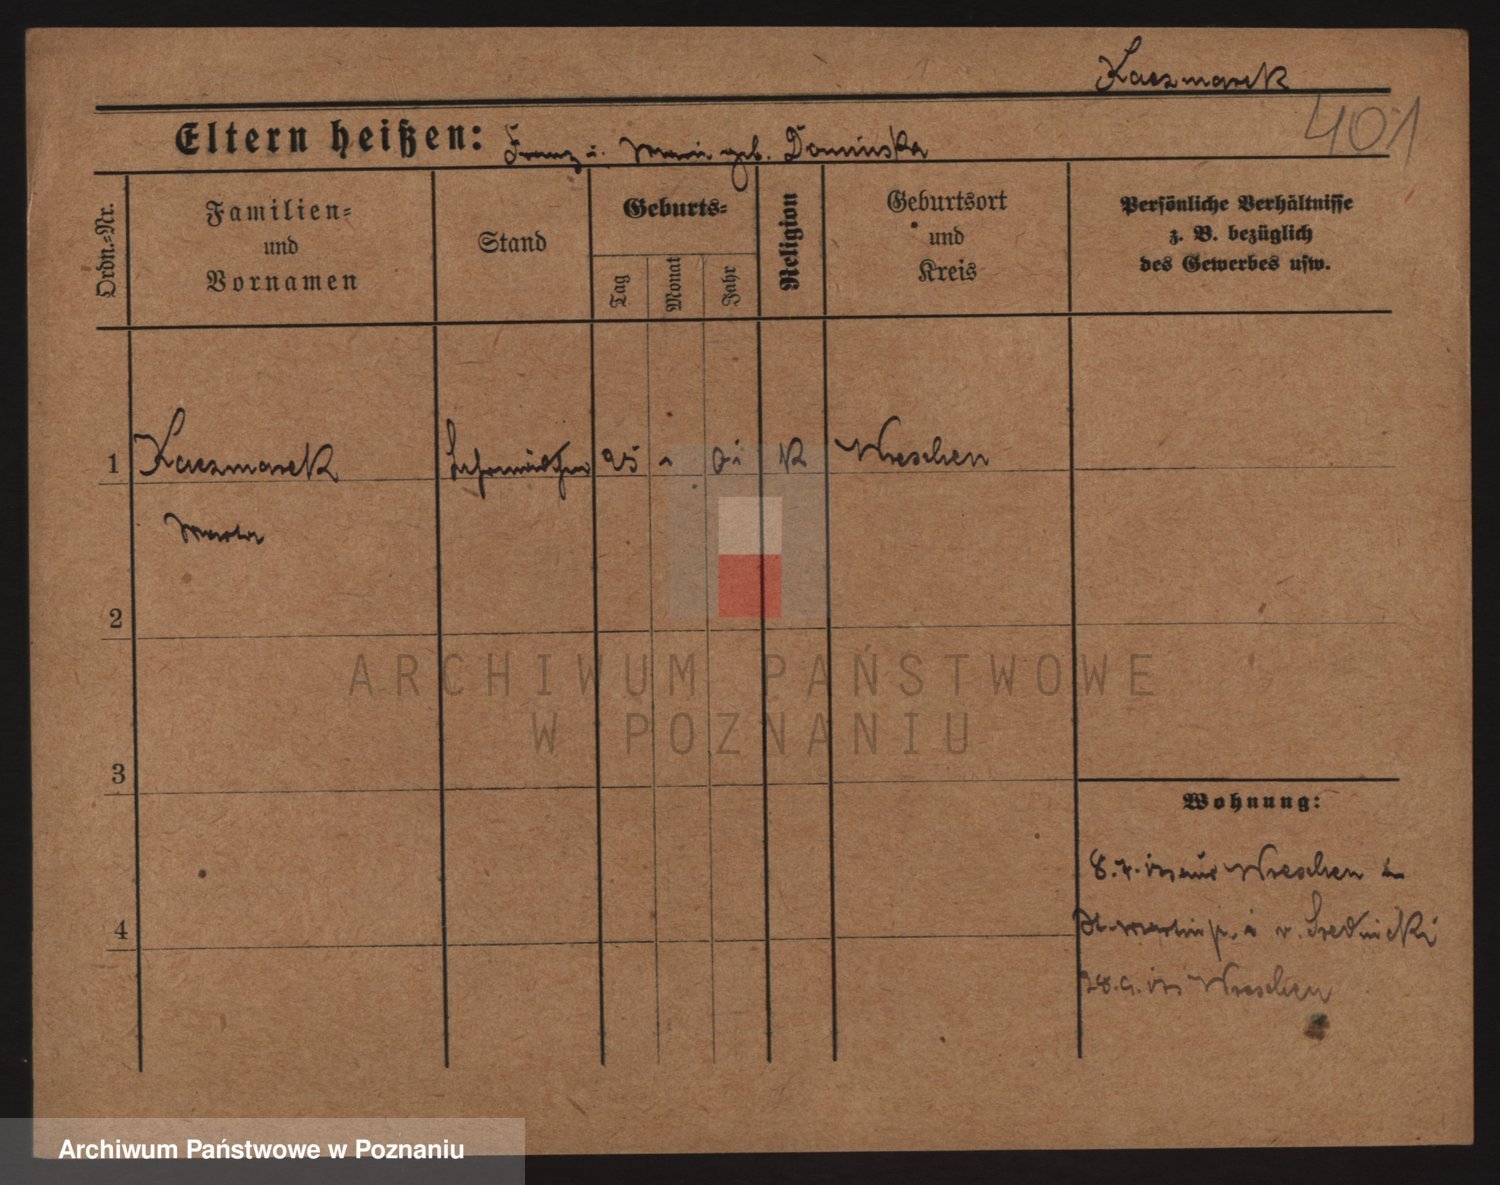 Kaczmarek
401
Eltern heißen: Franz u. Marie geb. Dominska
Ordn.=Nr.
Familien=
und
Vornamen
Stand
Geburts=
Tag
Monat
Jahr
Religion
Geburtsort
und
Kreis
Persönliche Verhältnisse
z. B. bezüglich
des Gewerbes usw.
1 Kaczmarek K Wreschen
Marta
2
3
4
Wohnung:
8. Wreschen
St. Martinstr. v. Srednicki
28. Wreschen
ARCHIWUM PAŃSTWOWE
W POZNANIU
Archiwum Państwowe w Poznaniu